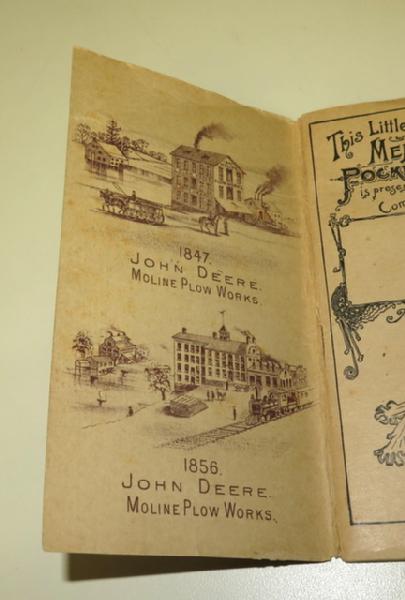 1847.
JOHN DEERE.
MOLINE PLOW WORKS.
1856.
JOHN DEERE.
MOLINE PLOW WORKS.
This Little
is prese
Com